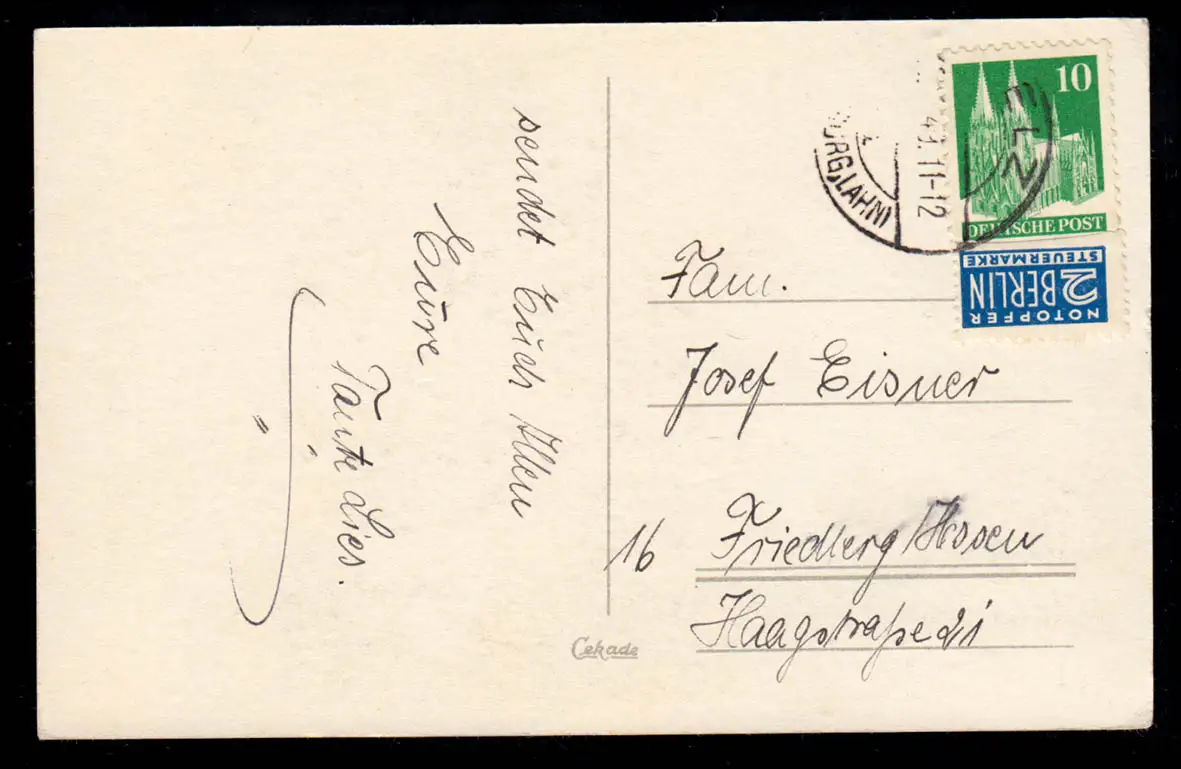 sendet Euch Allen
Eure
Tante Lies.
10
DEUTSCHE POST
NOTOPFER
2 BERLIN
STEUERMARKE
ELZ
49. 11-12
BURG, LAHN)
Fam.
Josef Eisner
16 Friedberg/Hessen
Haagstraße 21
Cekade